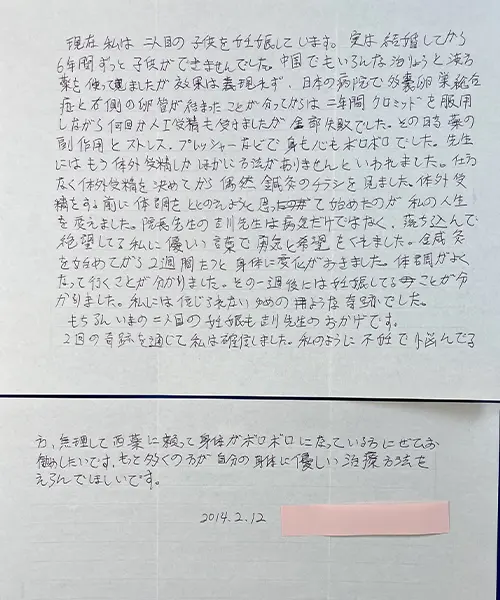 現在私は二人目の子供を妊娠しています。実は結婚してから
6年間ずっと子供ができませんでした。中国でもいろんな治りょうと漢方
薬を使って見ましたが効果は表現れず、日本の病院で多嚢卵巣総合
症と右側の卵管が詰まったことが分ってからは二年間クロミッドを服用
しながら何回か人工受精も受けましたが全部失敗でした。その時薬の
副作用とストレス、プレッシャーなどで身も心もボロボロでした。先生
にはもう体外受精しかほかに方法がありませんといわれました。仕方
なく体外受精を決めてから偶然鍼灸のチラシを見ました。体外受
精をする前に体調をととのえようと思って始めたのが私の人生
を変えました。院長先生の吉川先生は病気だけではなく、落ち込んで
絶望してる私に優しい言葉で勇気と希望をくれました。鍼灸
を始めてから2週間たつと身体に変化がおきました。体調がよく
なって行くことが分かりました。その一週後には妊娠してることが分
かりました。私には信じられないゆめの用ような奇跡でした。
もちろんいまの二人目の妊娠も吉川先生のおかげです。
2回の奇跡を通じて私は確信しました。私のように不妊で悩んでる
方、無理して西薬に頼って身体がボロボロになっている方にぜひお
勧めしたいです。もっと多くの方が自分の身体に優しい治療方法を
えらんでほしいです。
2014.2.12